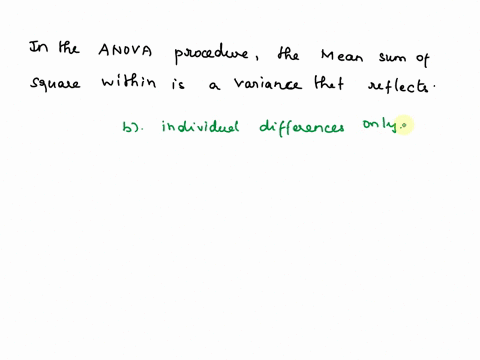 In the ANOVA procedure, the Mean sum of
square within is a variance that reflects.
b). individual differences only.